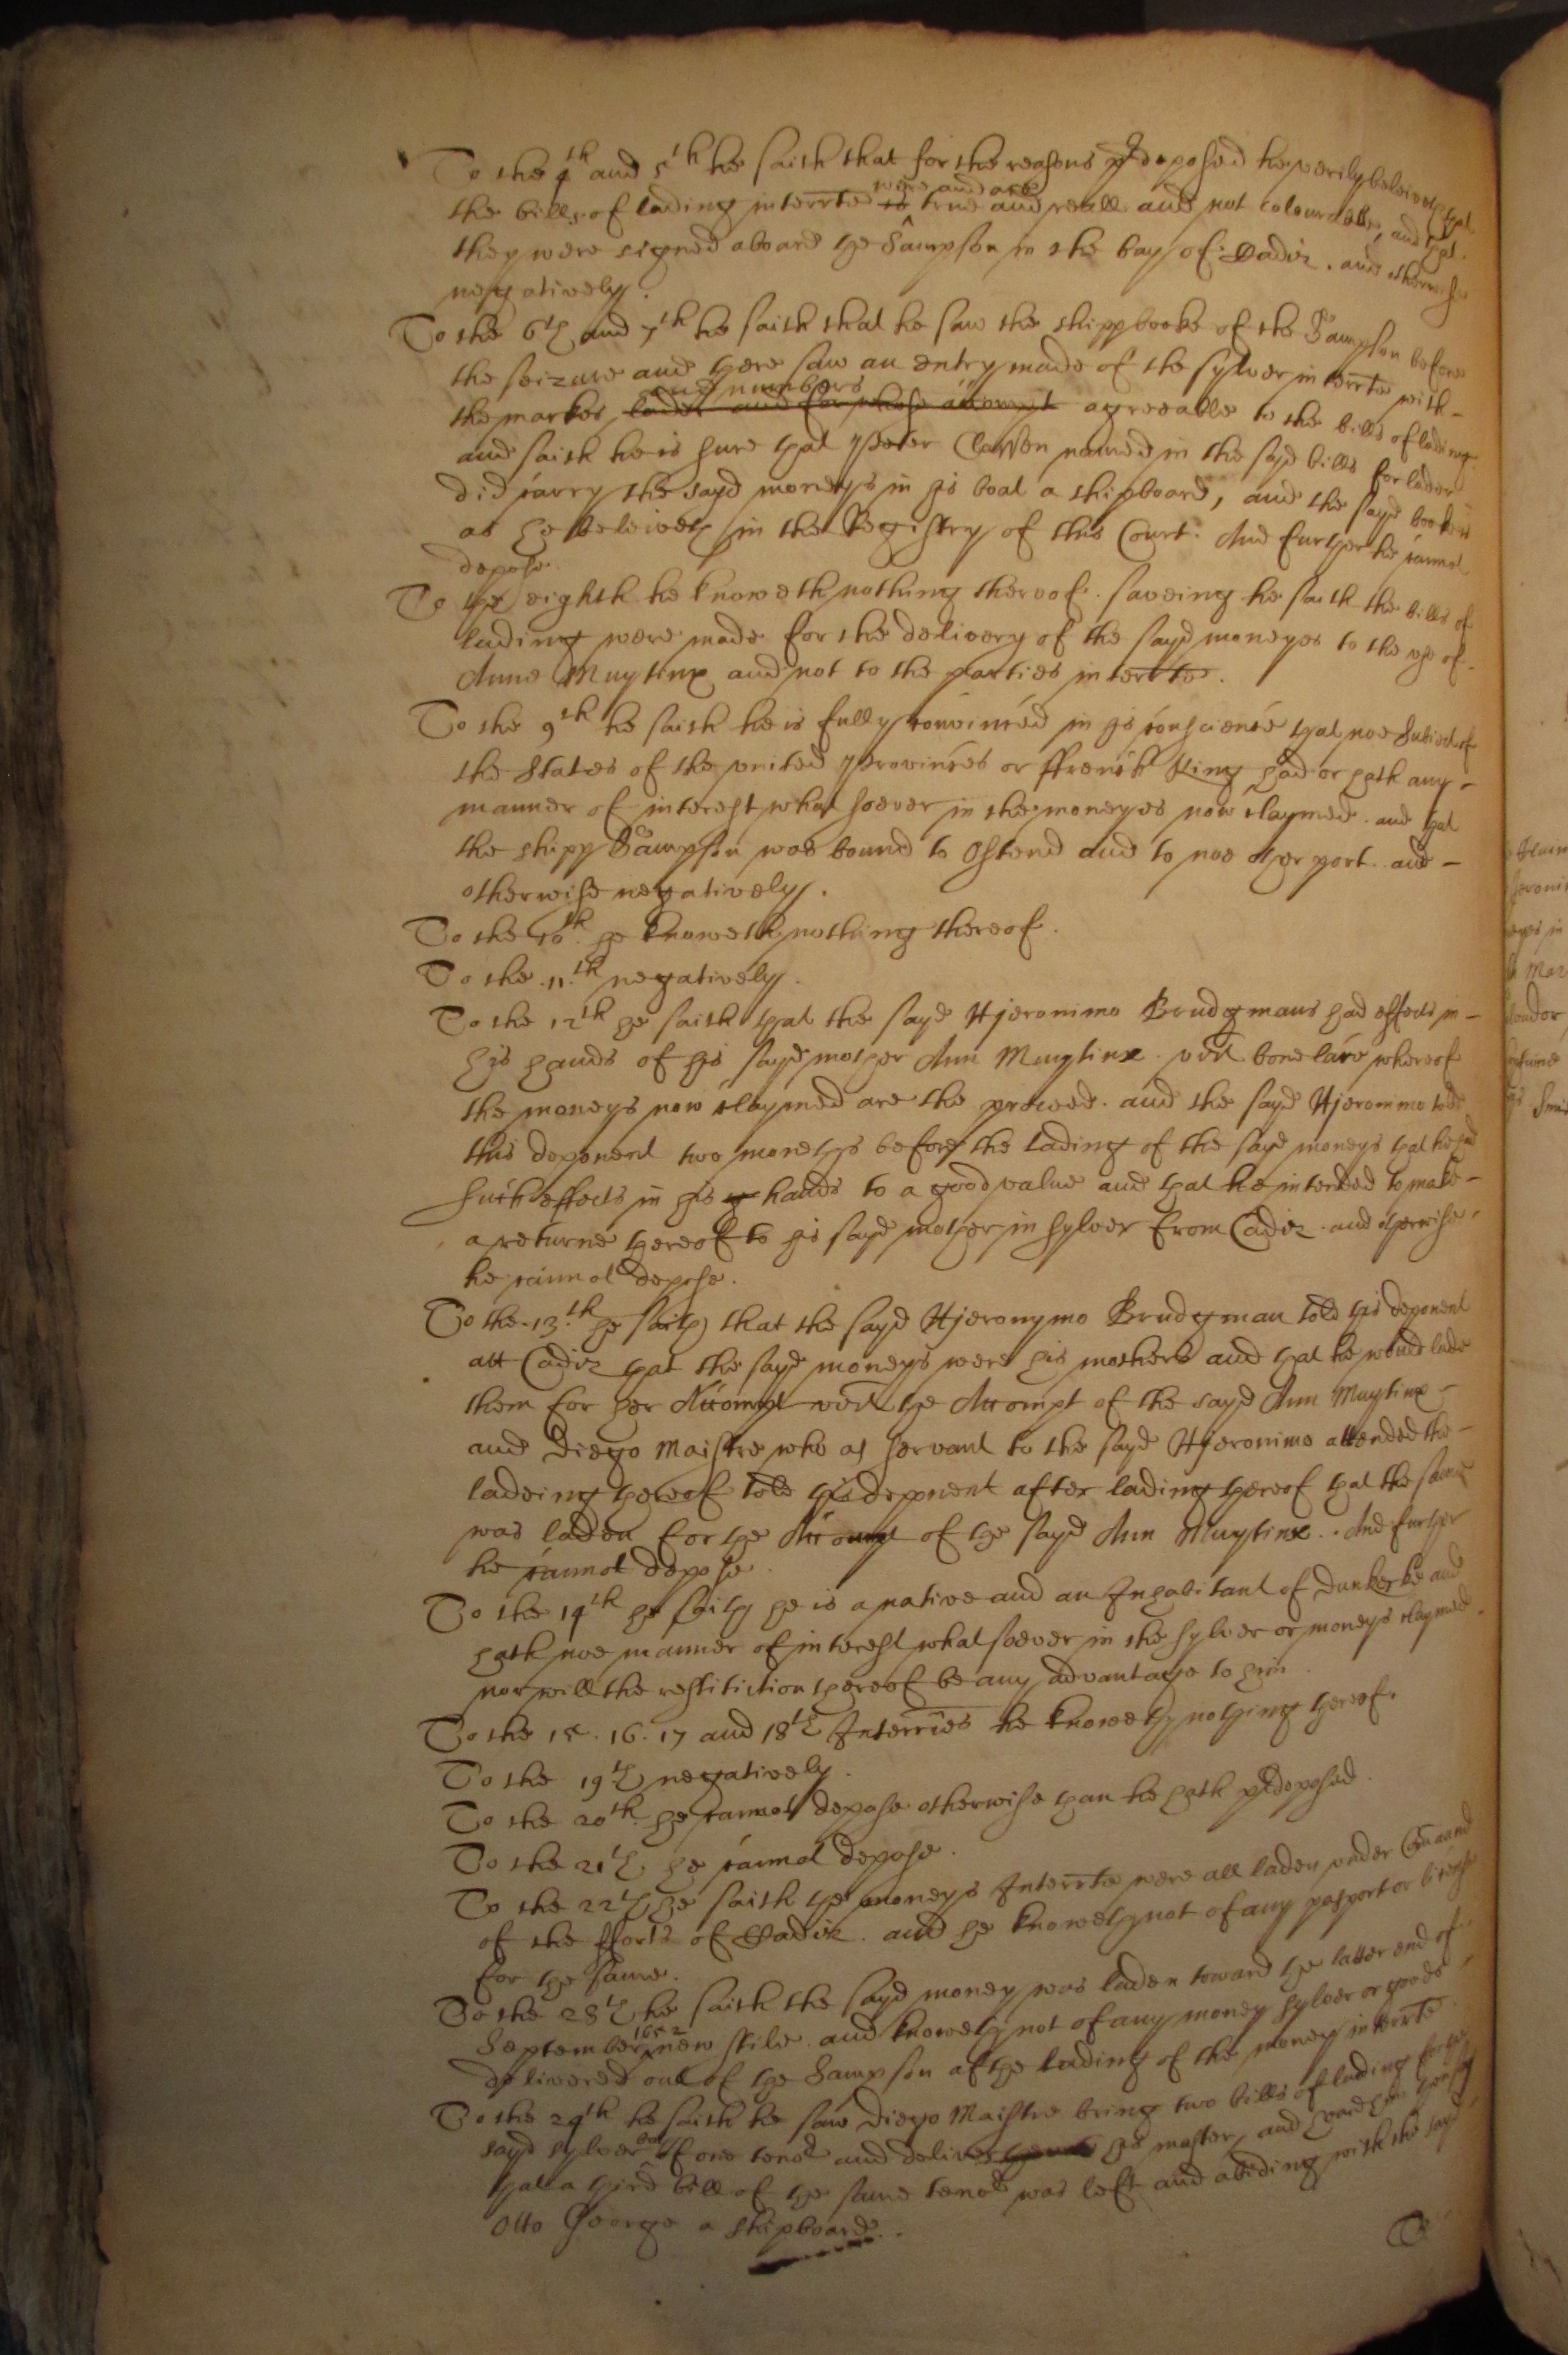 To the 4th and 5th he saith that for the reasons predeposed he verily beleiveth that
the bills of lading interrte were and are true and reall and not colourable, and that
they were signed aboard the Sampson in the bay of Cadiz. and otherwise
negatively.
To the 6th and 7th he saith that he saw the shipp booke of the Sampson before
the seizure and there saw an entry made of the sylver interrte with
the markes and numbers lader and for whose accompt agreeable to the bills of lading
and saith he is sure that Peter Clawsen named in the sayd bills for lader
did carry the sayd moneys in his boat a shipboard, and the sayd booke is
as he beleiveth in the Registry of this Court. And further he cannot
depose.
To the eighth he knoweth nothing thereof. saveing he saith the bills of
lading were made for the delivery of the sayd moneyes to the use of
Anna Muytinx and not to the parties interrte.
To the 9th he saith he is fully convinced in his conscience that noe Subiect of
the States of the united Provinces or ffrench King had or hath any
manner of interest whatsoever in the moneyes now claymed. and that
the shipp Sampson was bound to Ostend and to noe other port. and
otherwise negatively.
To the 10th. he knoweth nothing thereof.
To the .11.th negatively.
To the 12th he saith that the sayd Hieronimo Brudgmans had effects in
his hands of his sayd mother Ann Muytinx. vizt. bonelace whereof
the moneys now claymed are the proceed. and the sayd Hieronimo told
this deponent two moneths before the lading of the sayd moneys that he had
such effects in his hands to a good value and that he intended to make
a returne thereof to his sayd mother in sylver from Cadiz. and otherwise
he cannot depose.
To the .13.th he saith that the sayd Hieronymo Brudgman told this deponent
att Cadiz that the sayd moneys were his mothers and that he would lade
them for her Accompt vizt the Accompt of the sayd Ann Muytinx
and Diego Maistre who as servant to the sayd Hieronimo attended the
ladeing thereof told this deponent after lading thereof that the same
was laden for the Accompt of the sayd Ann Muytinx. And further
he cannot depose.
To the 14th he saith he is a native and an Inhabitant of Dunkerke and
hath noe manner of interest whatsoever in the sylver or moneys claymed
nor will the restitiction thereof be any advantage to him.
To the 15. 16. 17 and 18th Interries he knoweth nothing thereof.
To the 19th negatively.
To the 20th. he cannot depose otherwise than he hath predeposed.
To the 21th he cannot depose.
To the 22th he saith the moneys Interrte were all laden under Comaund
of the fforts of Cadiz. and he knoweth not of any pasport or licence
for the same.
To the 28th he saith the sayd money was laden toward the latter end of
September 1652 new stile. and knoweth not of any money sylver or goods
delivered out of the Sampson at the lading of the money interrte
To the 29th he saith he saw Diego Maistre bring two bills of lading for the
sayd sylver both of one tenor and deliver his master, and heard him then say
that a third bill of the same tenor was left and abiding with the sayd
Otto George a shipboard.
To